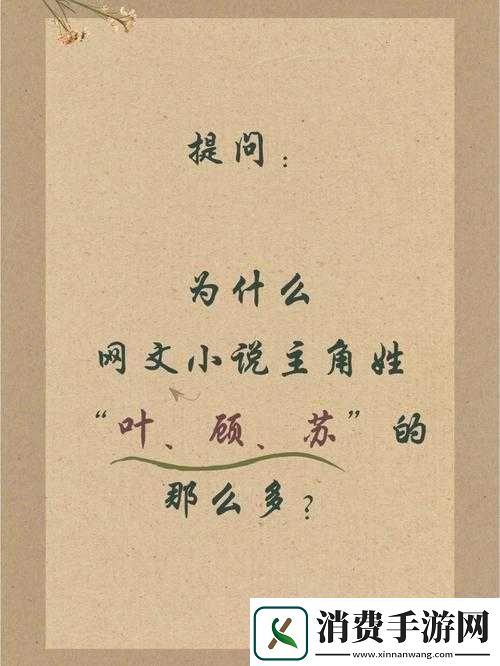 提问：
为什么
网文小说主角姓
“叶、顾、苏”的
那么多？
消费手游网
www.xinnanwang.com